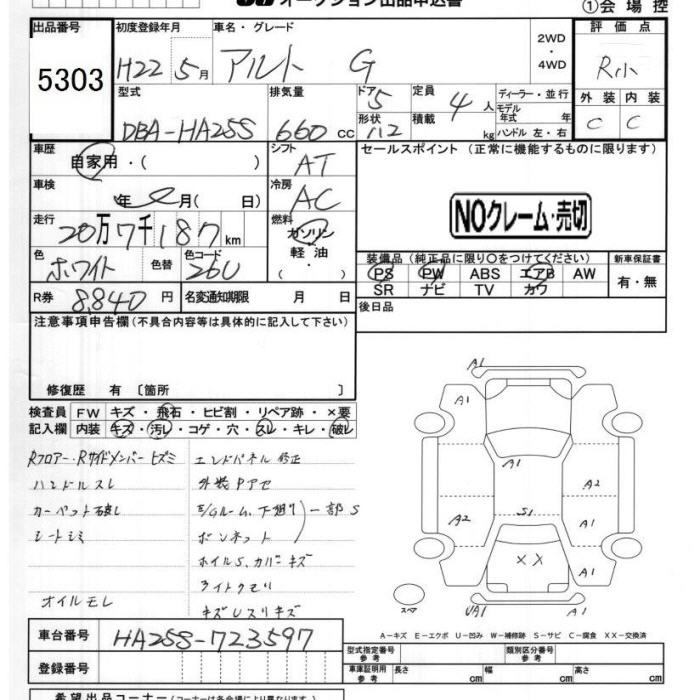 オークション出品申込書
①会場控
出品番号
5303
初度登録年月
H22 5月
車名・グレード
アルト G
2WD
・
4WD
評価点
R小
型式
DBA-HA25S
排気量
660 cc
ドア 5
形状 112
定員 4人
積載 kg
ディーラー・並行
モデル年式 年
ハンドル 左・右
外装 内装
C C
車歴
自家用・( )
シフト
AT
セールスポイント (正常に機能するものに限ります)
NOクレーム・売切
車検
年 月( 日)
冷房
AC
走行
20万7千187km
燃料
ガソリン
・
軽油
・
色
ホワイト
色替
色コード
26U
装備品 (純正品に限り〇をつけてください)
PS PW ABS エアB AW
SR ナビ TV カワ
新車保証書
有・無
R券
8,840円
名変通知期限 月 日
後日品
注意事項申告欄(不具合内容等は具体的に記入して下さい)
修復歴 有 〔箇所 〕
検査員 FW キズ・飛石・ヒビ割・リペア跡・×要
記入欄 内装 キズ・汚レ・コゲ・穴・スレ・キレ・破レ
Rフロアー・Rサイドメンバーヒズミ
ハンドルスレ
カーペット破レ
シートシミ
オイルモレ
エンドパネル修正
外装Pアセ
E/Gルーム、下廻り 一部S
ボンネット
ホイルS、カバーキズ
ライトクモリ
キズUスリキズ
A1
A1
A1
A2
A2
S1
××
A1
A1
UA1
スペア
A-キズ E-エクボ U-凹み W-補修跡 S-サビ C-腐食 XX-交換済
車台番号
HA25S-723597
登録番号
型式指定番号 参考
類別区分番号 参考
車庫証明用 参考 長さ cm 幅 cm 高さ cm
希望出品コーナー(コーナーは各会場により異なります)